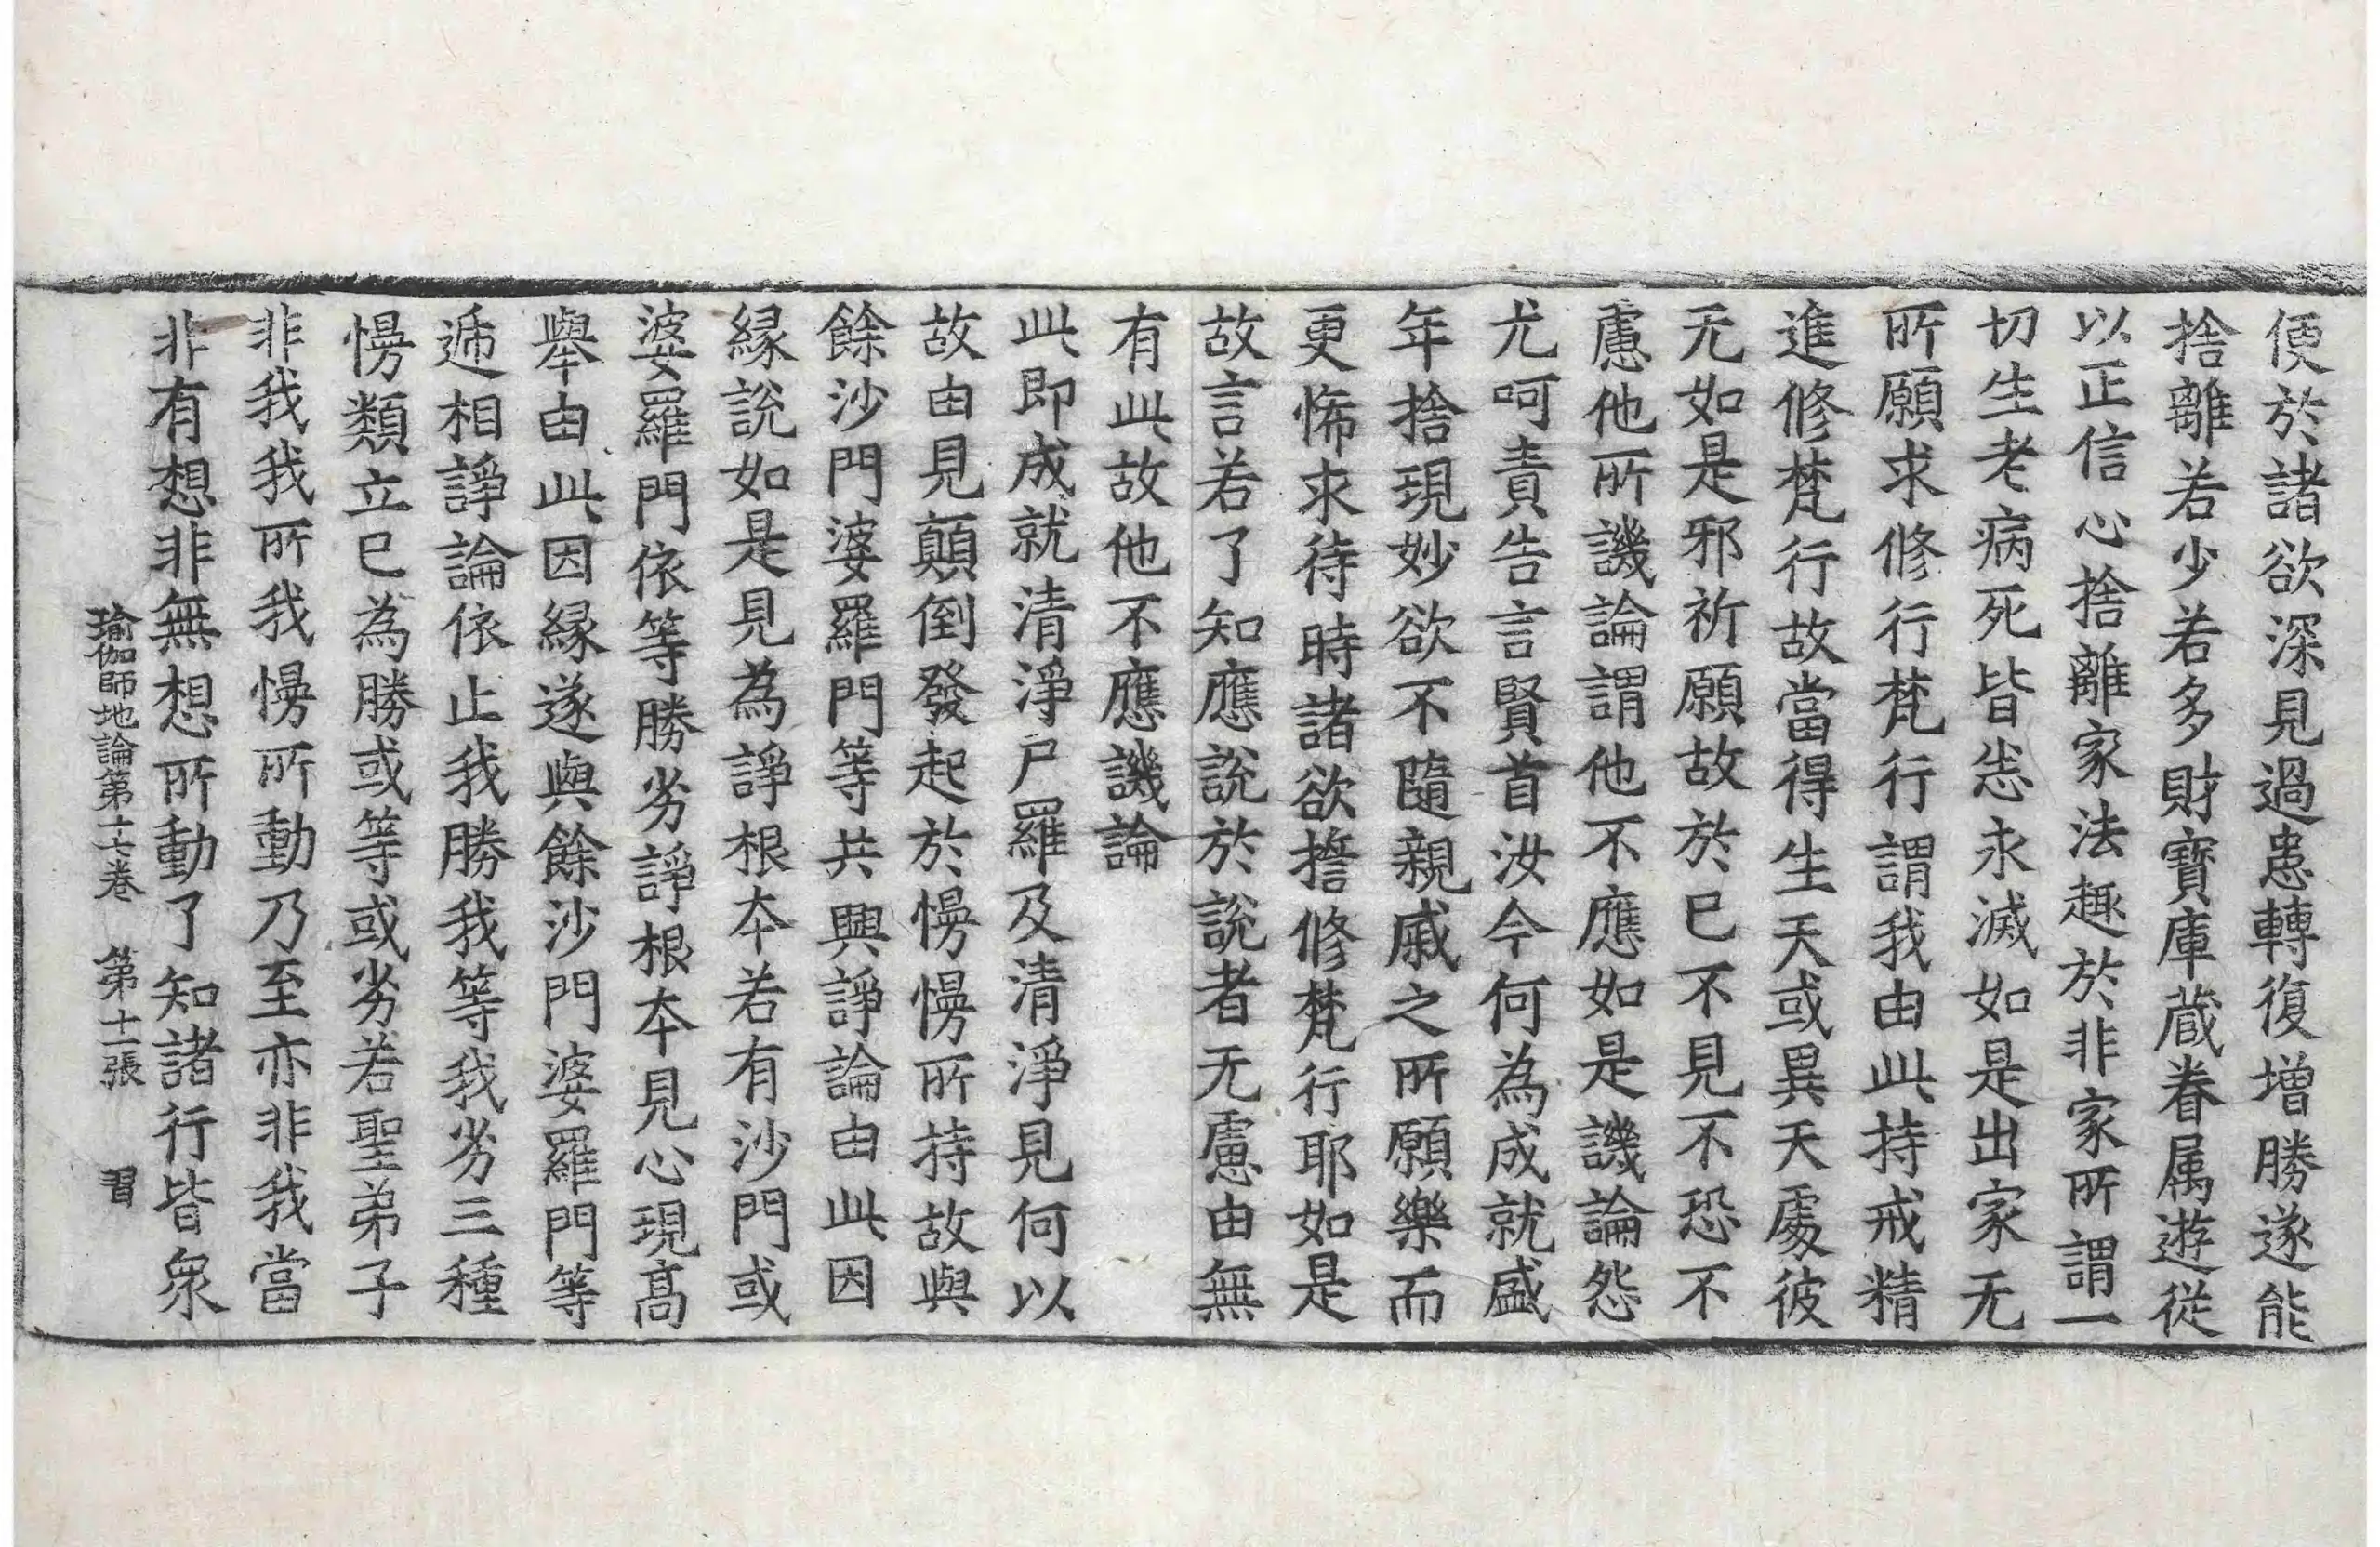 便於諸欲深見過患轉復增勝遂能
捨離若少若多財寶庫蔵眷属遊從
以正信心捨離家法趣於非家所謂一
切生老病死皆悉永滅如是出家无
所願求修行梵行謂我由此持戒精
進修梵行故當得生天或異天處彼
无如是邪祈願故於已不見不恐不
慮他所譏論謂他不應如是譏論怨
尤呵責告言賢首汝今何為成就盛
年捨現妙欲不隨親戚之所願樂而
更悕求待時諸欲擔修梵行耶如是
故言若了知應說於說者无慮由無
有此故他不應譏論
此即成就清淨尸羅及清淨見何以
故由見顛倒發起於慢慢所持故與
餘沙門婆羅門等共興諍論由此因
緣說如是見為諍根本若有沙門或
婆羅門依等勝劣諍根本見心現高
舉由此因緣遂與餘沙門婆羅門等
遞相諍論依止我勝我等我劣三種
慢類立已為勝或等或劣若聖弟子
非我我所我慢所動乃至亦非我當
非有想非無想所動了知諸行皆衆
瑜伽師地論第十七卷 第十二張 習